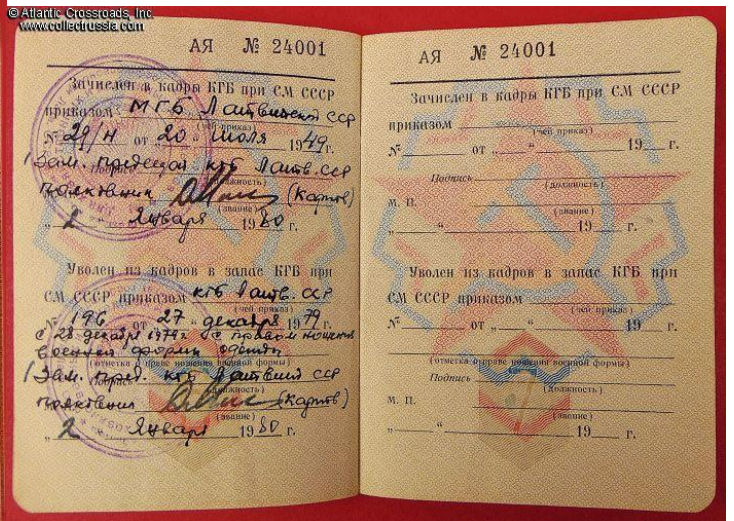 © Atlantic Crossroads, Inc.
www.collectrussia.com
АЯ № 24001
Зачислен в кадры КГБ при СМ СССР
приказом МГБ Латвийской ССР
(чей приказ)
№ 29/н от „20“ июля 1949г.
Зам. председ. КГБ Латв. ССР
Подпись (должность)
полковник (Карпов)
(звание)
„2“ Января 1980 г.
Уволен из кадров в запас КГБ при
СМ СССР приказом КГБ Латв. ССР
(чей приказ)
№ 196 от „27“ декабря 1979 г.
с 28 декабря 1979г. с правом ношения
военной формы одежды
(отметка о праве ношения военной формы)
Зам. пред. КГБ Латвий ССР
Подпись (должность)
полковник (Карпов)
(звание)
„2“ Января 1980 г.
АЯ № 24001
Зачислен в кадры КГБ при СМ СССР
приказом
(чей приказ)
№ от „ “ 19 г.
Подпись
(должность)
М. П.
(звание)
„ “ 19 г.
Уволен из кадров в запас КГБ при
СМ СССР приказом
(чей приказ)
№ от „ “ 19 г.
(отметка о праве ношения военной формы)
Подпись
(должность)
М. П.
(звание)
„ “ 19 г.